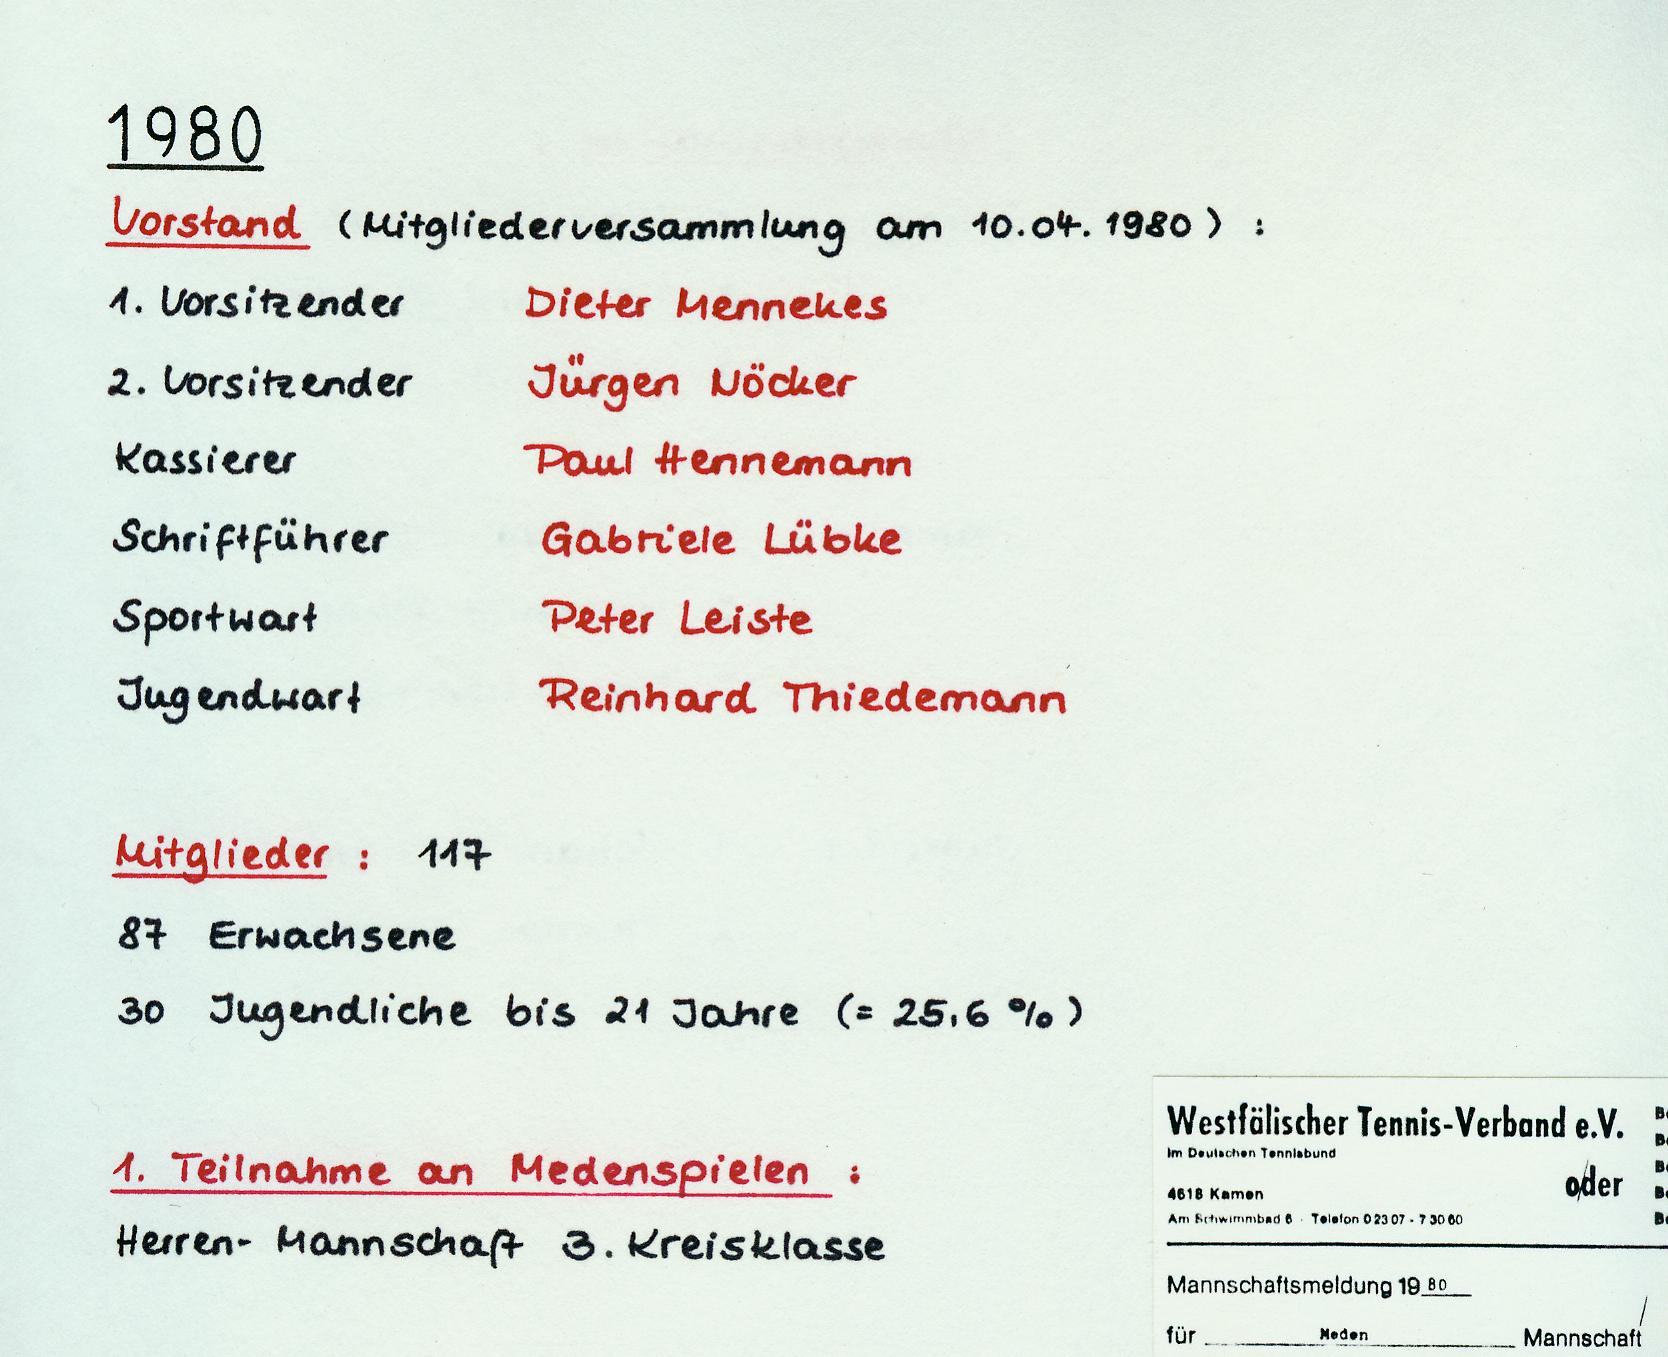 1980
Vorstand (Mitgliederversammlung am 10.04.1980) :
1. Vorsitzender Dieter Mennekes
2. Vorsitzender Jürgen Nöcker
Kassierer Paul Hennemann
Schriftführer Gabriele Lübke
Sportwart Peter Leiste
Jugendwart Reinhard Thiedemann
Mitglieder : 117
87 Erwachsene
30 Jugendliche bis 21 Jahre (= 25,6 %)
1. Teilnahme an Medenspielen :
Herren-Mannschaft 3. Kreisklasse
Westfälischer Tennis-Verband e.V.
Im Deutschen Tennisbund
oder
4618 Kamen
Am Schwimmbad 6 · Telefon 0 23 07 - 7 30 60
Mannschaftsmeldung 19 80
für Meden Mannschaft